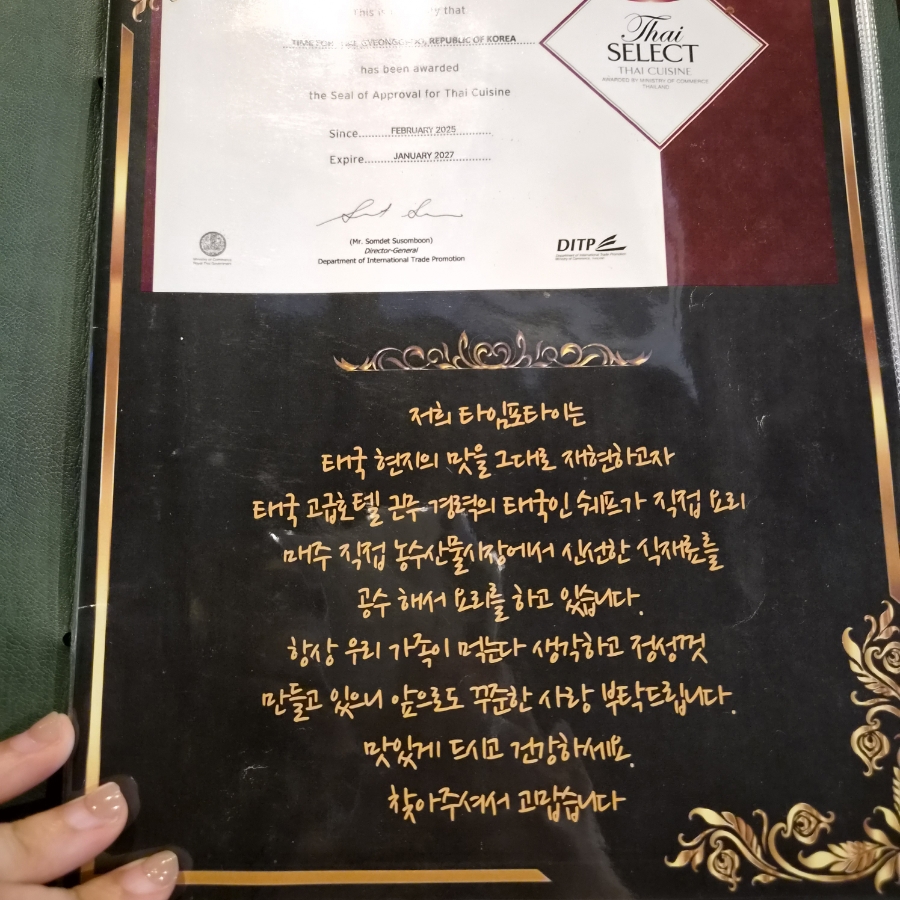 This is to certify that
REPUBLIC OF KOREA
has been awarded
the Seal of Approval for Thai Cuisine
Since FEBRUARY 2025
Expire JANUARY 2027
(Mr. Somdet Susomboon)
Director-General
Department of International Trade Promotion
DITP
Department of International Trade Promotion
Thai
SELECT
THAI CUISINE
AWARDED BY MINISTRY OF COMMERCE
THAILAND
저희 타임포타이는
태국 현지의 맛을 그대로 재현하고자
태국 고급호텔 근무 경력의 태국인 쉐프가 직접 요리
매주 직접 농수산물시장에서 신선한 식재료를
공수 해서 요리를 하고 있습니다.
항상 우리 가족이 먹는다 생각하고 정성껏
만들고 있으니 앞으로도 꾸준한 사랑 부탁드립니다.
맛있게 드시고 건강하세요.
찾아주셔서 고맙습니다